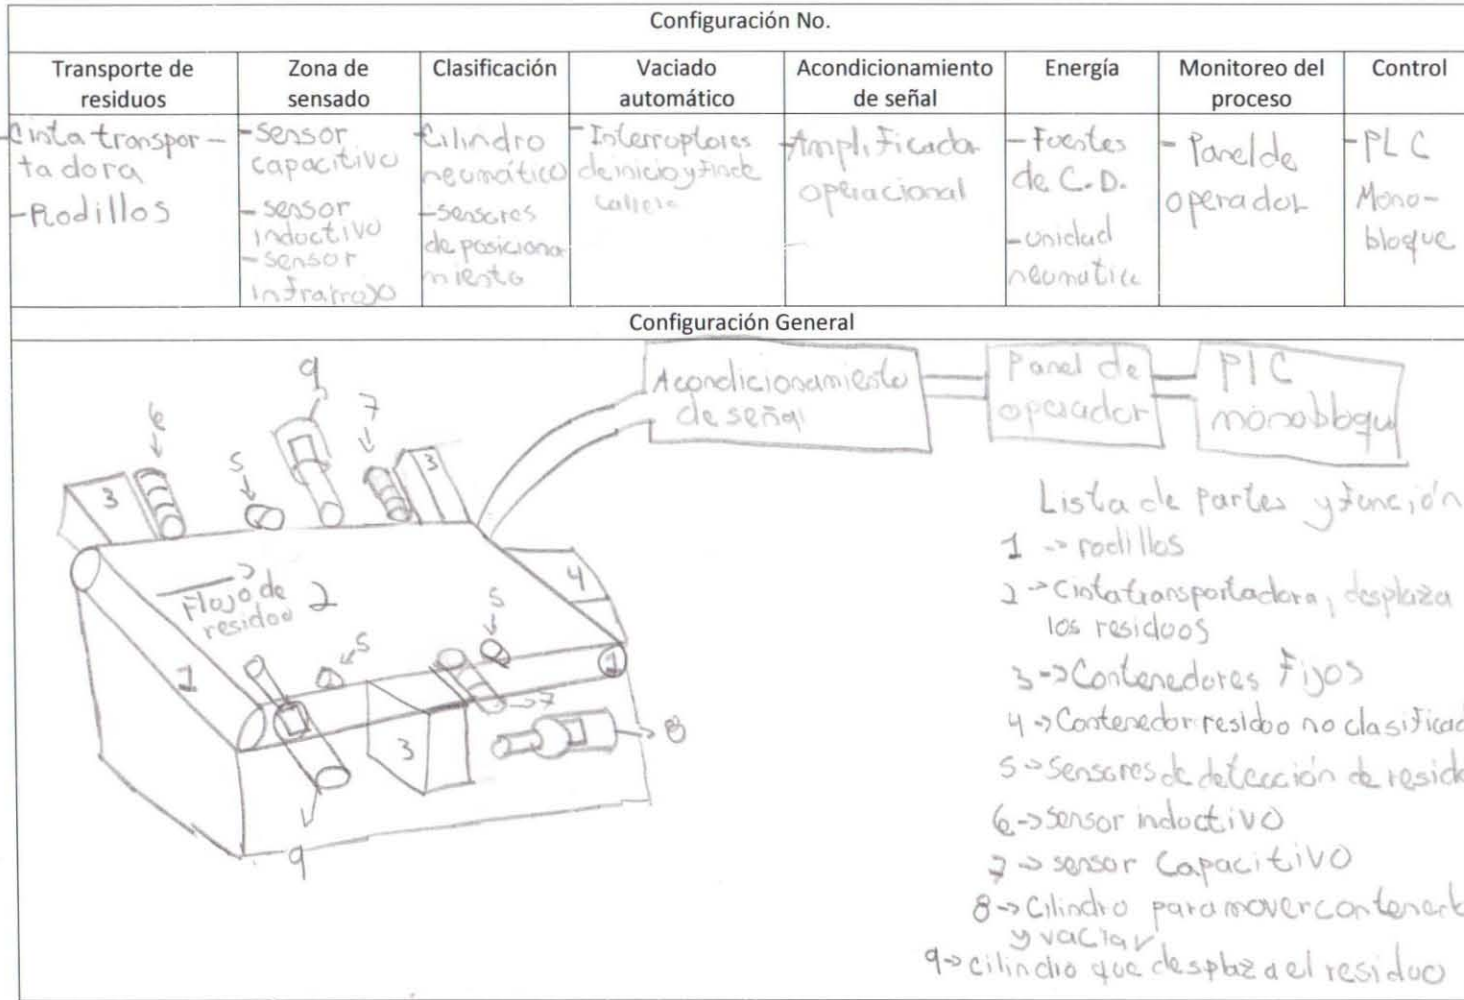 Configuración No.
Transporte de
residuos
Zona de
sensado
Clasificación
Vaciado
automático
Acondicionamiento
de señal
Energía
Monitoreo del
proceso
Control
-Cinta transpor-
tadora
-Rodillos
-sensor
capacitivo
-sensor
inductivo
-sensor
infrarrojo
-Cilindro
neumático
-sensores
de posiciona
miento
-Interruptores
de inicio y fin de
-Amplificador
operacional
-Fuentes
de C.D.
-unidad
neumatica
-Panel de
operador
-PLC
Mono-
bloque
Configuración General
Acondicionamiento
de señal
Panel de
operador
PLC
monobloqu
9
6
7
5
3
3
4
Flujo de
residuo
2
5
5
1
1
7
3
8
9
Lista de partes y función
1 -> rodillos
2 -> Cinta transportadora, desplaza
los residuos
3 -> Contenedores Fijos
4 -> Contenedor residuo no clasificad
5 -> Sensores de detección de resid
6 -> sensor inductivo
7 -> sensor Capacitivo
8 -> Cilindro para mover contened
y vaciar
9 -> cilindro que desplaza el residuo